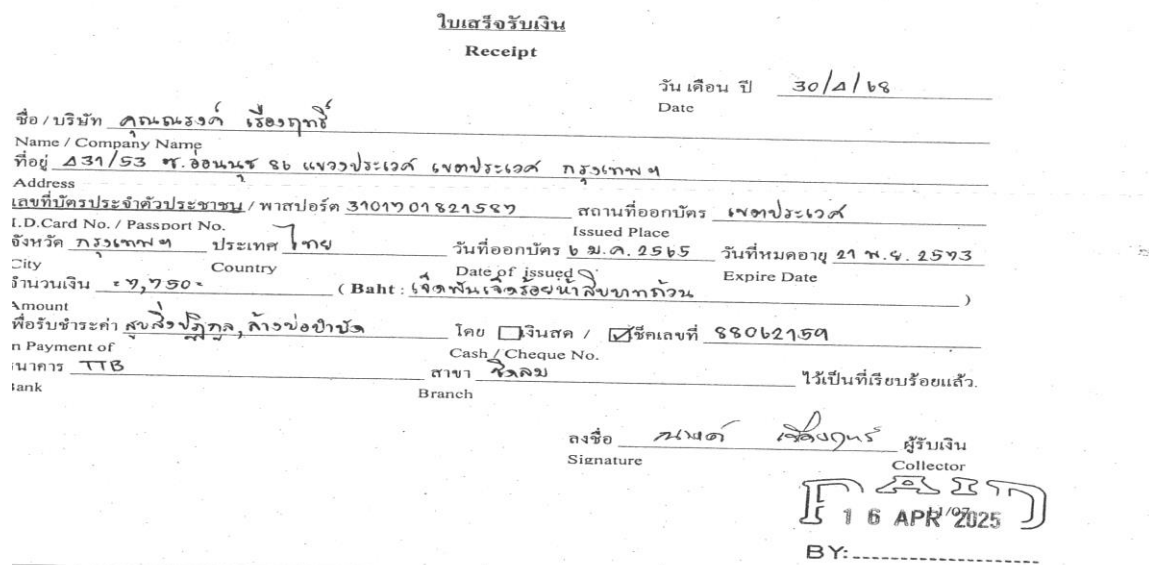 ใบเสร็จรับเงิน
Receipt
วัน เดือน ปี 30/4/68
Date
ชื่อ / บริษัท คุณณรงค์ เรืองฤทธิ์
Name / Company Name
ที่อยู่ 431/53 ซ.อ่อนนุช 86 แขวงประเวศ เขตประเวศ กรุงเทพฯ
Address
เลขที่บัตรประจำตัวประชาชน / พาสปอร์ต 3101701821587 สถานที่ออกบัตร เขตประเวศ
I.D.Card No. / Passport No. Issued Place
จังหวัด กรุงเทพฯ ประเทศ ไทย วันที่ออกบัตร 6 ม.ค. 2565 วันที่หมดอายุ 21 พ.ย. 2573
City Country Date of issued Expire Date
จำนวนเงิน = 7,750 = ( Baht : เจ็ดพันเจ็ดร้อยห้าสิบบาทถ้วน )
Amount
พื่อรับชำระค่า สูบสิ่งปฏิกูล, ล้างบ่อบำบัด โดย เงินสด / เช็คเลขที่ 88062159
n Payment of Cash / Cheque No.
ธนาคาร TTB สาขา ชิดลม ไว้เป็นที่เรียบร้อยแล้ว.
Bank Branch
ลงชื่อ ณรงค์ เรืองฤทธิ์ ผู้รับเงิน
Signature Collector
PAID
11/07
16 APR 2025
BY: